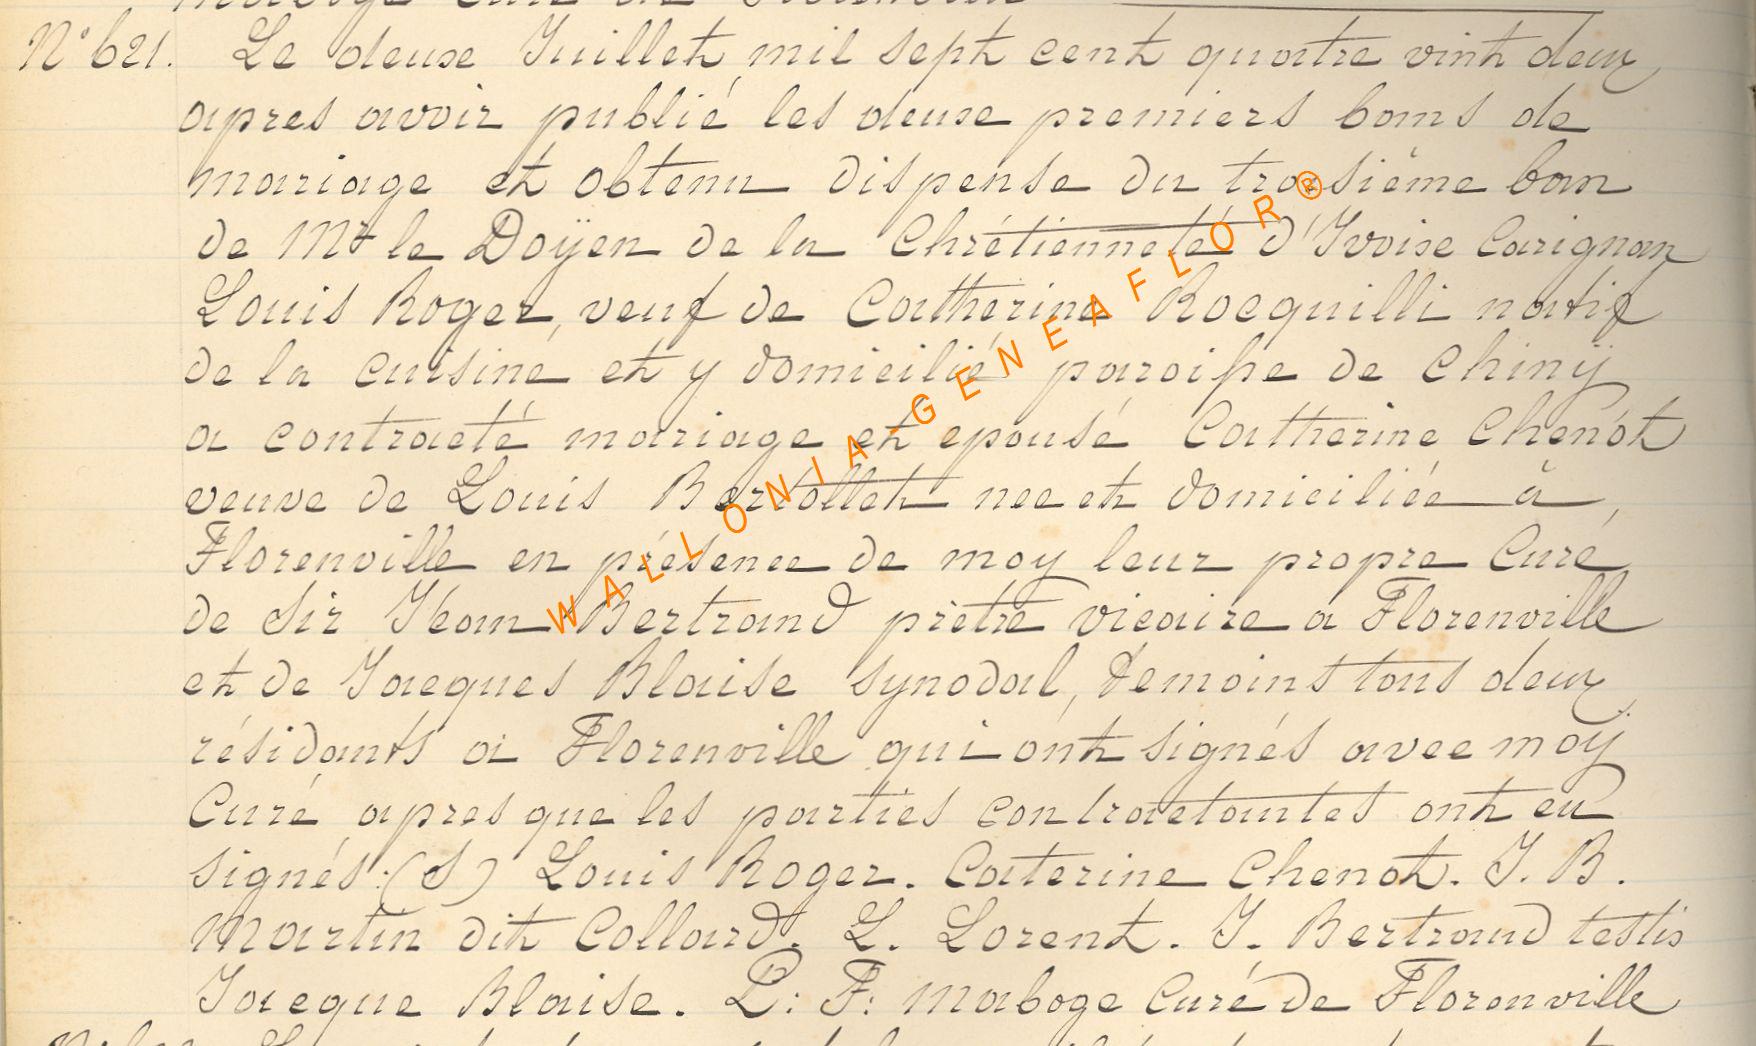 N° 621. Le deuxe Juillet mil sept cent quatre vint deux
apres avoir publié les deuxe premiers bans de
mariage et obtenu dispense du troisième ban
de Mr le Doÿen de la Chrétienneté d'Ivoixe Carignan
Louis Roger, veuf de Catherine Rocquilli natif
de la cuisine et y domicilié paroisse de Chinÿ
a contracté mariage et epousé Catherine Chenot
veuve de Louis Bertollet nee et domiciliée à
Florenville en présence de moy leur propre Curé
de Sir Jean Bertrand prêtre vicaire a Florenville
et de Jacques Blaise synodal, temoins tous deux
résidants a Florenville qui ont signés avec moÿ
Curé apres que les parties contractantes ont eu
signés: (S) Louis Roger. Caterine Chenot. J. B.
Martin dit Collard. L. Lorent. J. Bertrand testis
Jacque Blaise. P: F: Maboge Curé de Florenville
WALLONIA-GENEAFLOR®